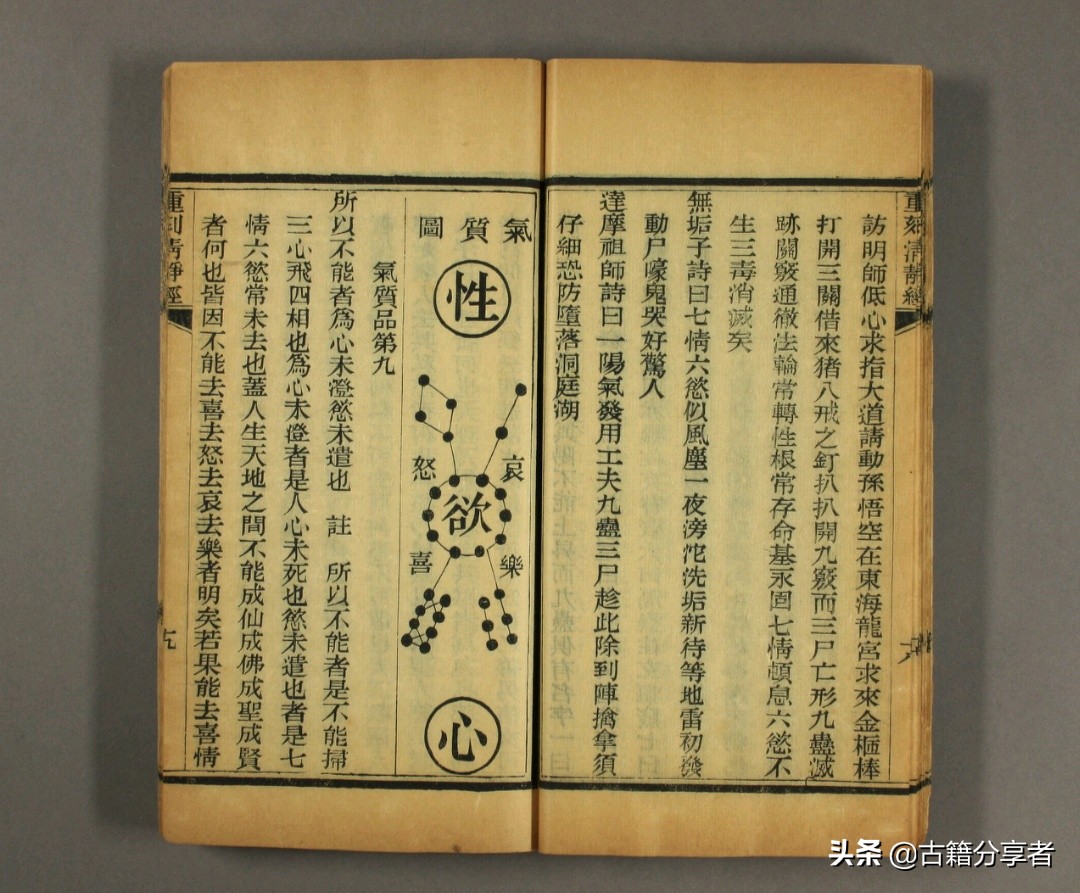 重刻清靜經
訪明師低心求指大道請動孫悟空在東海龍宮求來金棍棒
打開三關借來猪八戒之釘扒扒開九竅而三尸亡形九蠱滅
跡關竅通徹法輪常轉性根常存命基永固七情頓息六慾不
生三毒消滅矣
無垢子詩曰七情六慾似風塵一夜滂沱洗垢新待等地雷初發
動尸嚎鬼哭好驚人
達摩祖師詩曰一陽氣發用工夫九蠱三尸趁此除到陣擒拿須
仔細恐防墮落洞庭湖
氣質圖
性
哀
怒
欲
樂
喜
心
氣質品第九
所以不能者爲心未澄慾未遣也 註 所以不能者是不能掃
三心飛四相也爲心未澄者是人心未死也慾未遣也者是七
情六慾常未去也蓋人生天地之間不能成仙成佛成聖成賢
者何也皆因不能去喜去怒去哀去樂者明矣若果能去喜情
重刻清靜經
九
头条 @古籍分享者